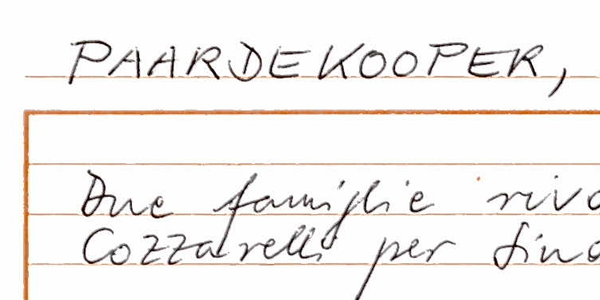 PAARDEKOOPER,
Due famiglie
Cozzarelli per